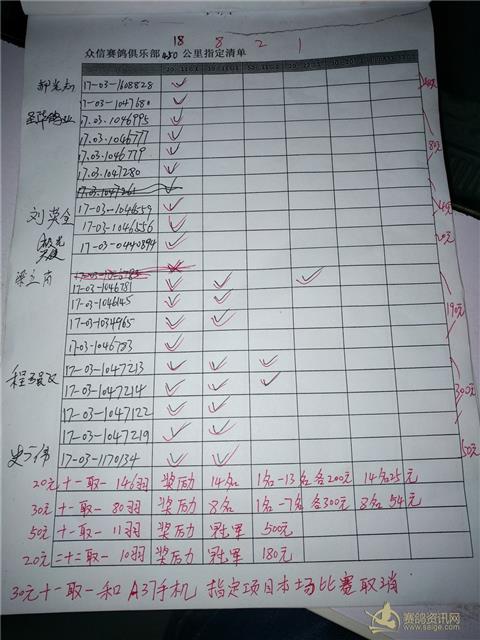 18 8 2 1
众信赛鸽俱乐部450公里指定清单
17-03-1608828
17-03-1047680
17.03.1046995
17.03.1046777
17.03.1046779
17.03.1047280
17.03.1047261
刘英全 17-03-1046559
17-03-1046556
17-03-0440894
17-03-1046781
17-03-1046145
17-03-1034965
190元
17-03-1046783
17-03-1047213
17-03-1047214
300元
17-03-1047122
17-03-1047219
17-03-1170134
50元
20元十一取一 146羽 奖励 14名 1名-13名各200元 14名25元
30元十一取一 80羽 奖励 8名 1名-7名各300元 8名54元
50元十一取一 11羽 奖励 冠军 500元
20元二十二取一 10羽 奖励 冠军 180元
30元十一取一和A37手机 指定项目本场比赛取消
赛鸽资讯网
www.saige.com